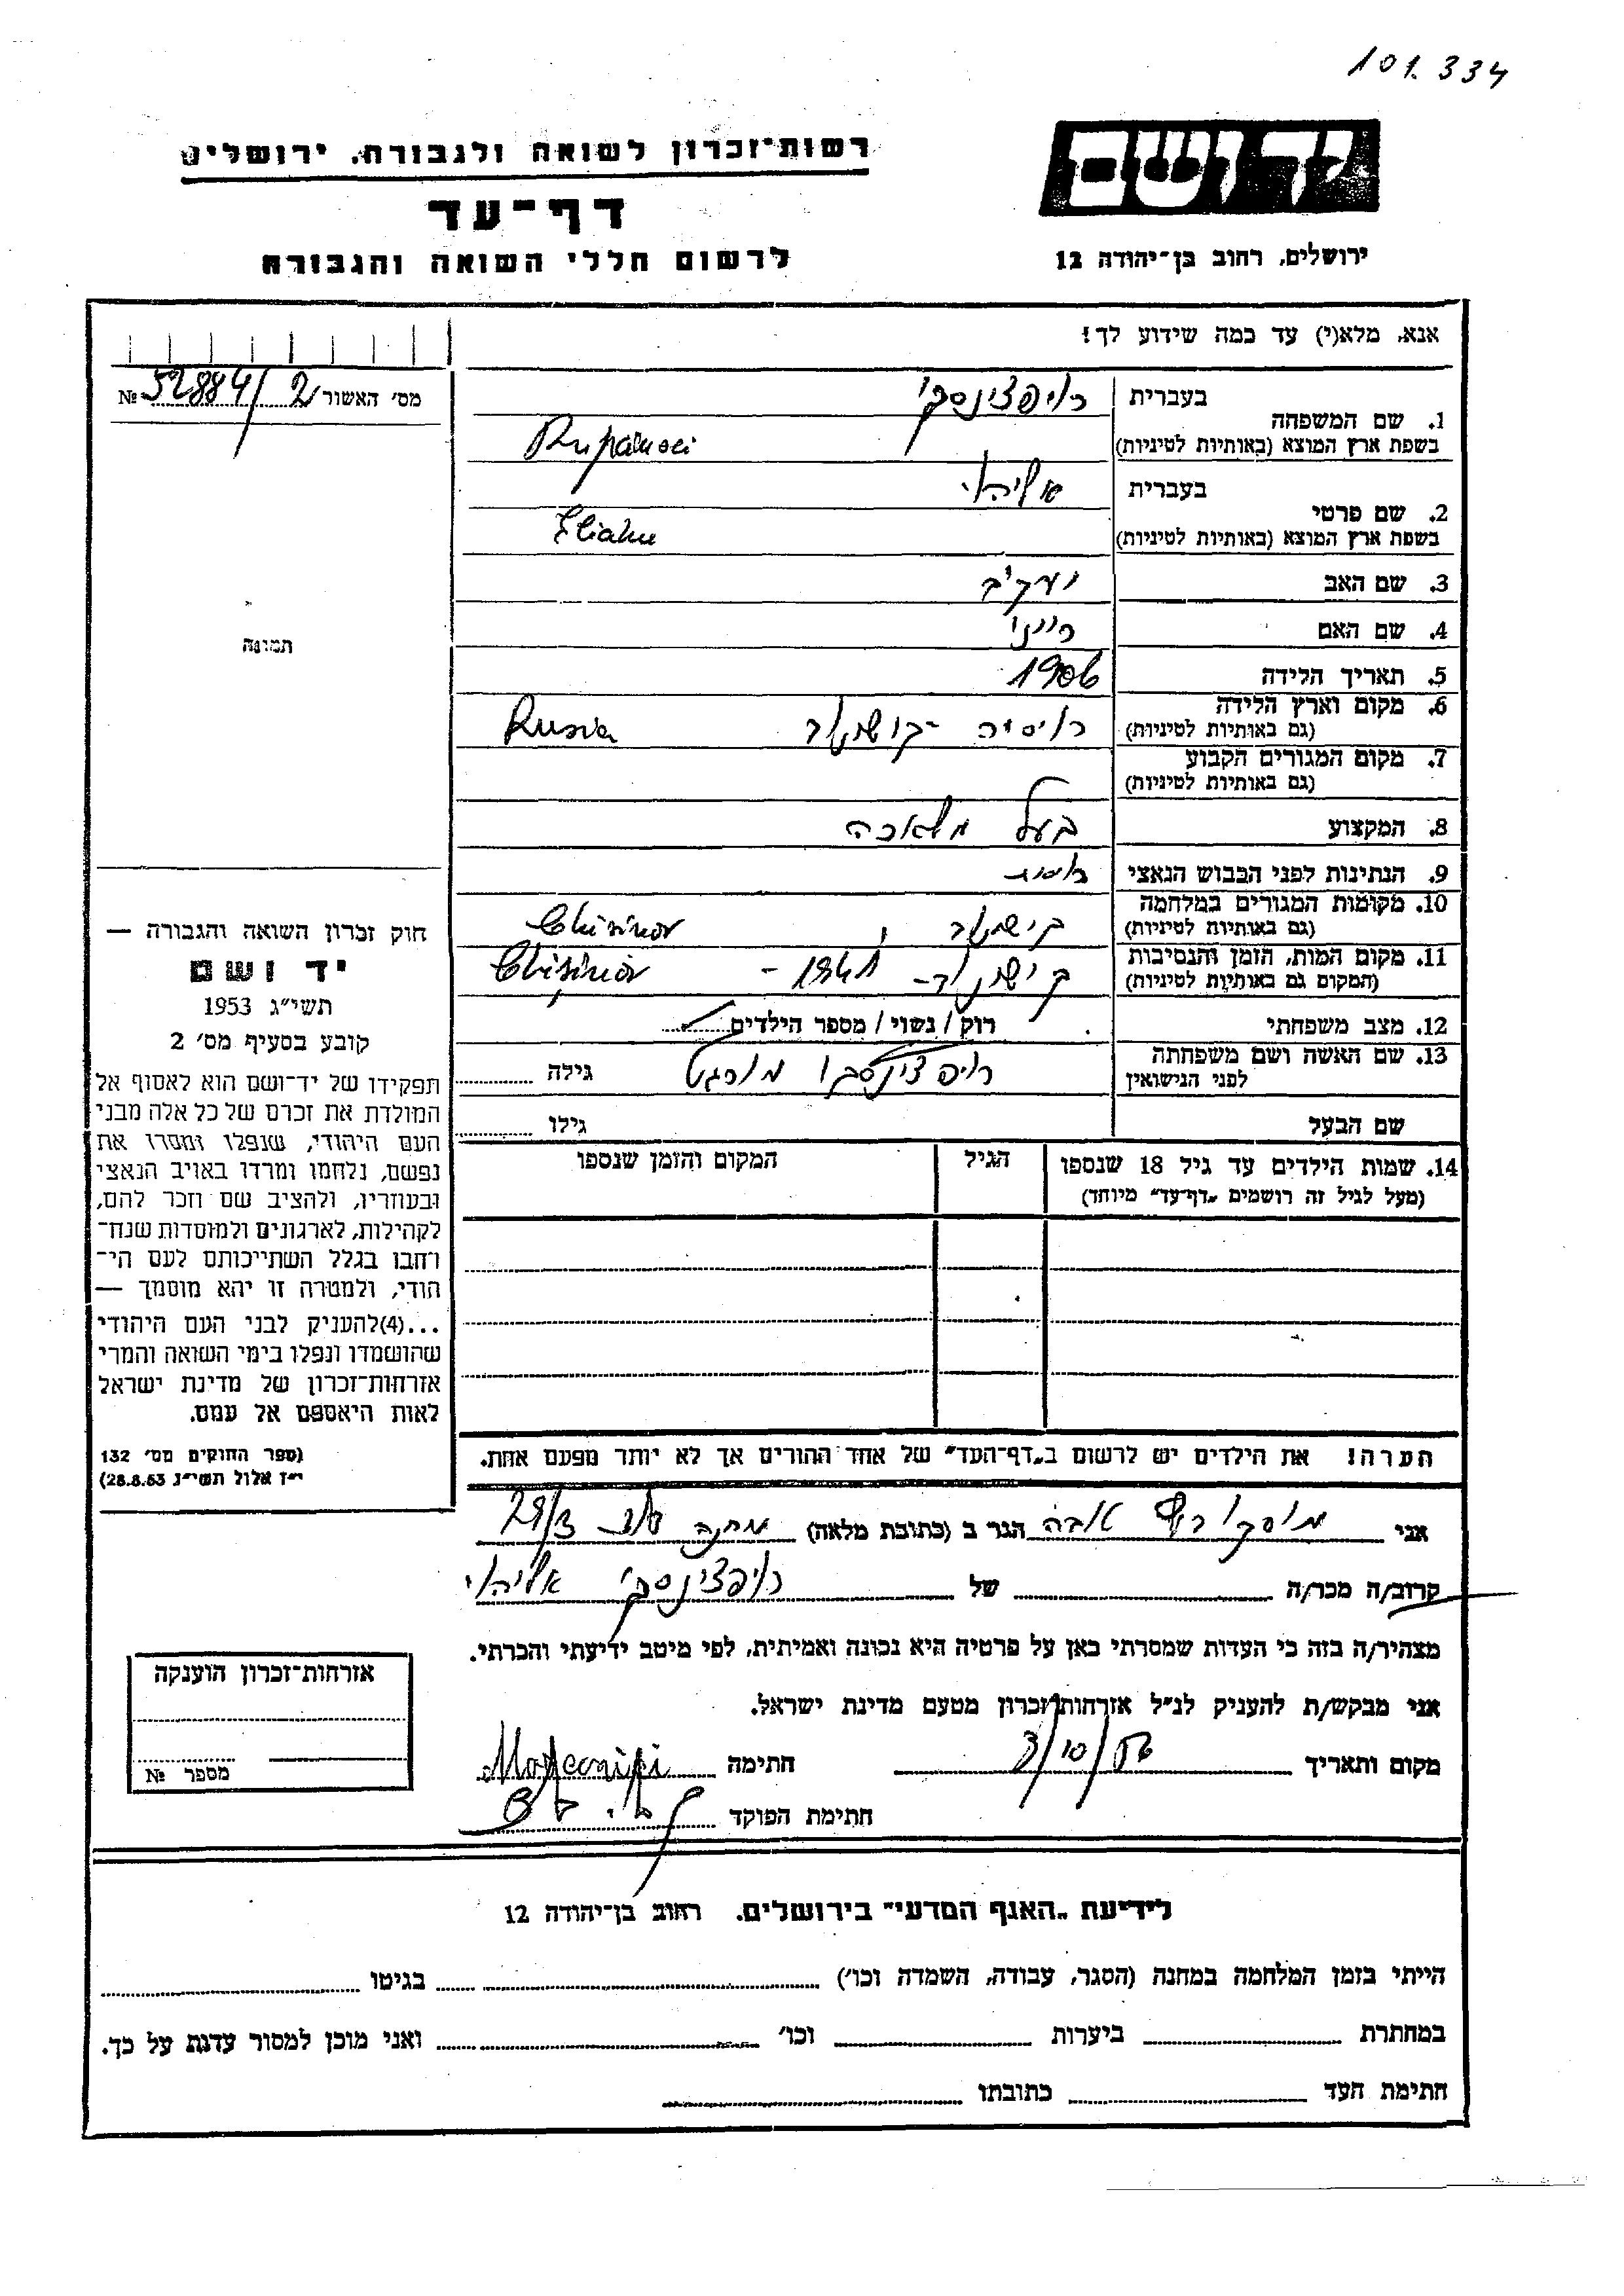 101.334
רשות־זכרון לשואה ולגבורה, ירושלים
יד ושם
דף־עד
לרשום חללי השואה והגבורה
ירושלים, רחוב בן־יהודה 12
אנא, מלא(י) עד כמה שידוע לך!
מס׳ האשור 52884/2 №
1. שם המשפחה
בעברית
בשפת ארץ המוצא (באותיות לטיניות)
2. שם פרטי
בעברית אליהו
בשפת ארץ המוצא (באותיות לטיניות) Eliahu
3. שם האב יעקיב
4. שם האם
5. תאריך הלידה 1906
6. מקום וארץ הלידה
(גם באותיות לטיניות) רוסיה Rusia
7. מקום המגורים הקבוע
(גם באותיות לטיניות)
8. המקצוע בעל מלאכה
9. הנתינות לפני הכבוש הנאצי רוסית
10. מקומות המגורים במלחמה
(גם באותיות לטיניות) קישינוב,
11. מקום המות, הזמן והנסיבות
(המקום גם באותיות לטיניות) 1941 -
12. מצב משפחתי רוק / נשוי / מספר הילדים
13. שם האשה ושם משפחתה
לפני הנישואין גילה
שם הבעל גילו
14. שמות הילדים עד גיל 18 שנספו
(מעל לגיל זה רושמים „דף־עד״ מיוחד)
הגיל
המקום והזמן שנספו
הערה! את הילדים יש לרשום ב„דף־העד״ של אחד ההורים אך לא יותר מפעם אחת.
תמונה
חוק זכרון השואה והגבורה —
יד ושם
תשי״ג 1953
קובע בסעיף מס׳ 2
תפקידו של יד־ושם הוא לאסוף אל
המולדת את זכרם של כל אלה מבני
העם היהודי, שנפלו ומסרו את
נפשם, נלחמו ומרדו באויב הנאצי
ובעוזריו, ולהציב שם וזכר להם,
לקהילות, לארגונים ולמוסדות שנח־
רחבו בגלל השתייכותם לעם הי־
הודי, ולמטרה זו יהא מוסמך —
...(4)להעניק לבני העם היהודי
שהושמדו ונפלו בימי השואה והמרי
אזרחות־זכרון של מדינת ישראל
לאות היאספם אל עמם.
(ספר החוקים מס׳ 132
י״ז אלול תשי״ג 28.8.53)
אני הגר ב (כתובת מלאה) מחנה
קרוב/ה מכר/ה של אליהו
מצהיר/ה בזה כי העדות שמסרתי כאן על פרטיה היא נכונה ואמיתית, לפי מיטב ידיעתי והכרתי.
אני מבקש/ת להעניק לנ״ל אזרחות־זכרון מטעם מדינת ישראל.
מקום ותאריך חתימה
חתימת הפוקד
אזרחות־זכרון הוענקה
מספר №
לידיעת „האגף המדעי״ בירושלים. רחוב בן־יהודה 12
הייתי בזמן המלחמה במחנה (הסגר, עבודה, השמדה וכו׳) בגיטו
במחתרת ביערות וכו׳ ואני מוכן למסור עדות על כך.
חתימת העד כתובתו